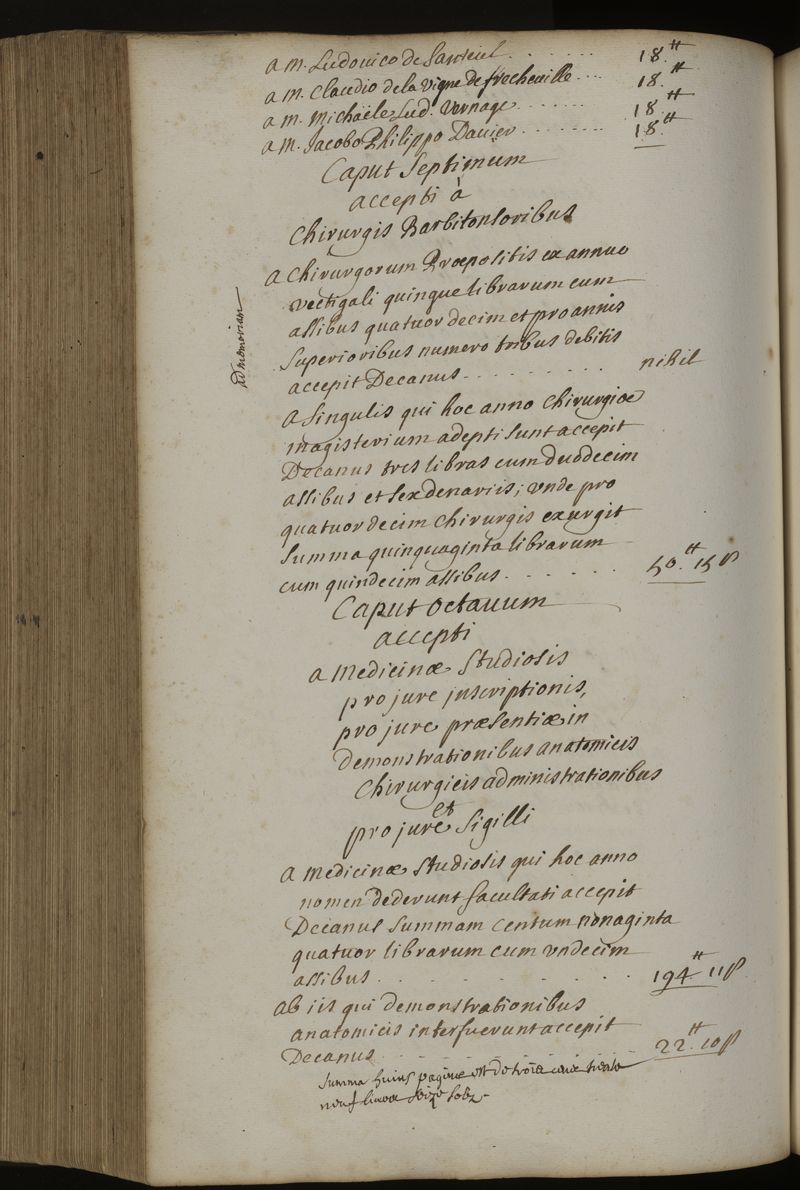 a M. Ludovico de Santeul . . . . . . . 18.ᵗᵗ
a M. Claudio de la Vigne de frecheuille . . . 18.ᵗᵗ
a M. Michaële Lud. Vernage . . . . . . 18.ᵗᵗ
a M. Jacobo Philippo Dauier . . . . . . . . 18.ᵗᵗ
Caput Septimum
accepti à
Chirurgis Barbitonsoribus
a Chirurgorum Præpositis ex annuo
vectigali quinque librarum cum
assibus quatuordecim et pro annis
superioribus numero tribus debitis
accepit Decanus . . . . . . . . . nihil
ad memoriam
a singulis qui hoc anno Chirurgiæ
magisterium adepti sunt accepit
Decanus tres libras cum duodecim
assibus et sex denariis; vnde pro
quatuordecim chirurgis exurgit
summa quinquaginta librarum
cum quindecim assibus . . . . . . 50.ᵗᵗ 15 ß
Caput octauum
accepti
a Medicinæ Studiosis
pro jure jnscriptionis,
pro jure præsentiæ in
demonstrationibus anatomicis
Chirurgicis administrationibus
et
pro jure Sigilli
a medicinæ studiosis qui hoc anno
nomen dederunt facultati accepit
Decanus summam centum nonaginta
quatuor librarum cum vndecim
assibus . . . . . . . . . 194.ᵗᵗ 11 ß
ab iis qui demonstrationibus
anatomicis interfuerunt accepit
Decanus . . . . . . . . . 22.ᵗᵗ 10 ß
summa huius paginæ est de trois cent trente
neuf liures seize solz.